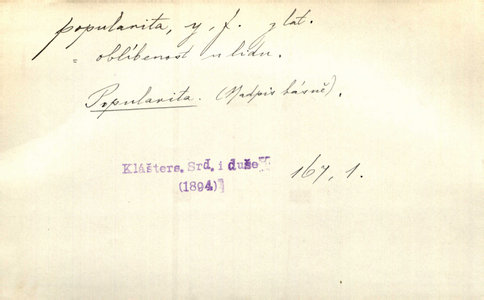 popularita, y, f. z lat.
= oblíbenost u lidu.
Popularita. (Nadpis básně).
Klášters. Srd. i duše
(1894)
167, 1.